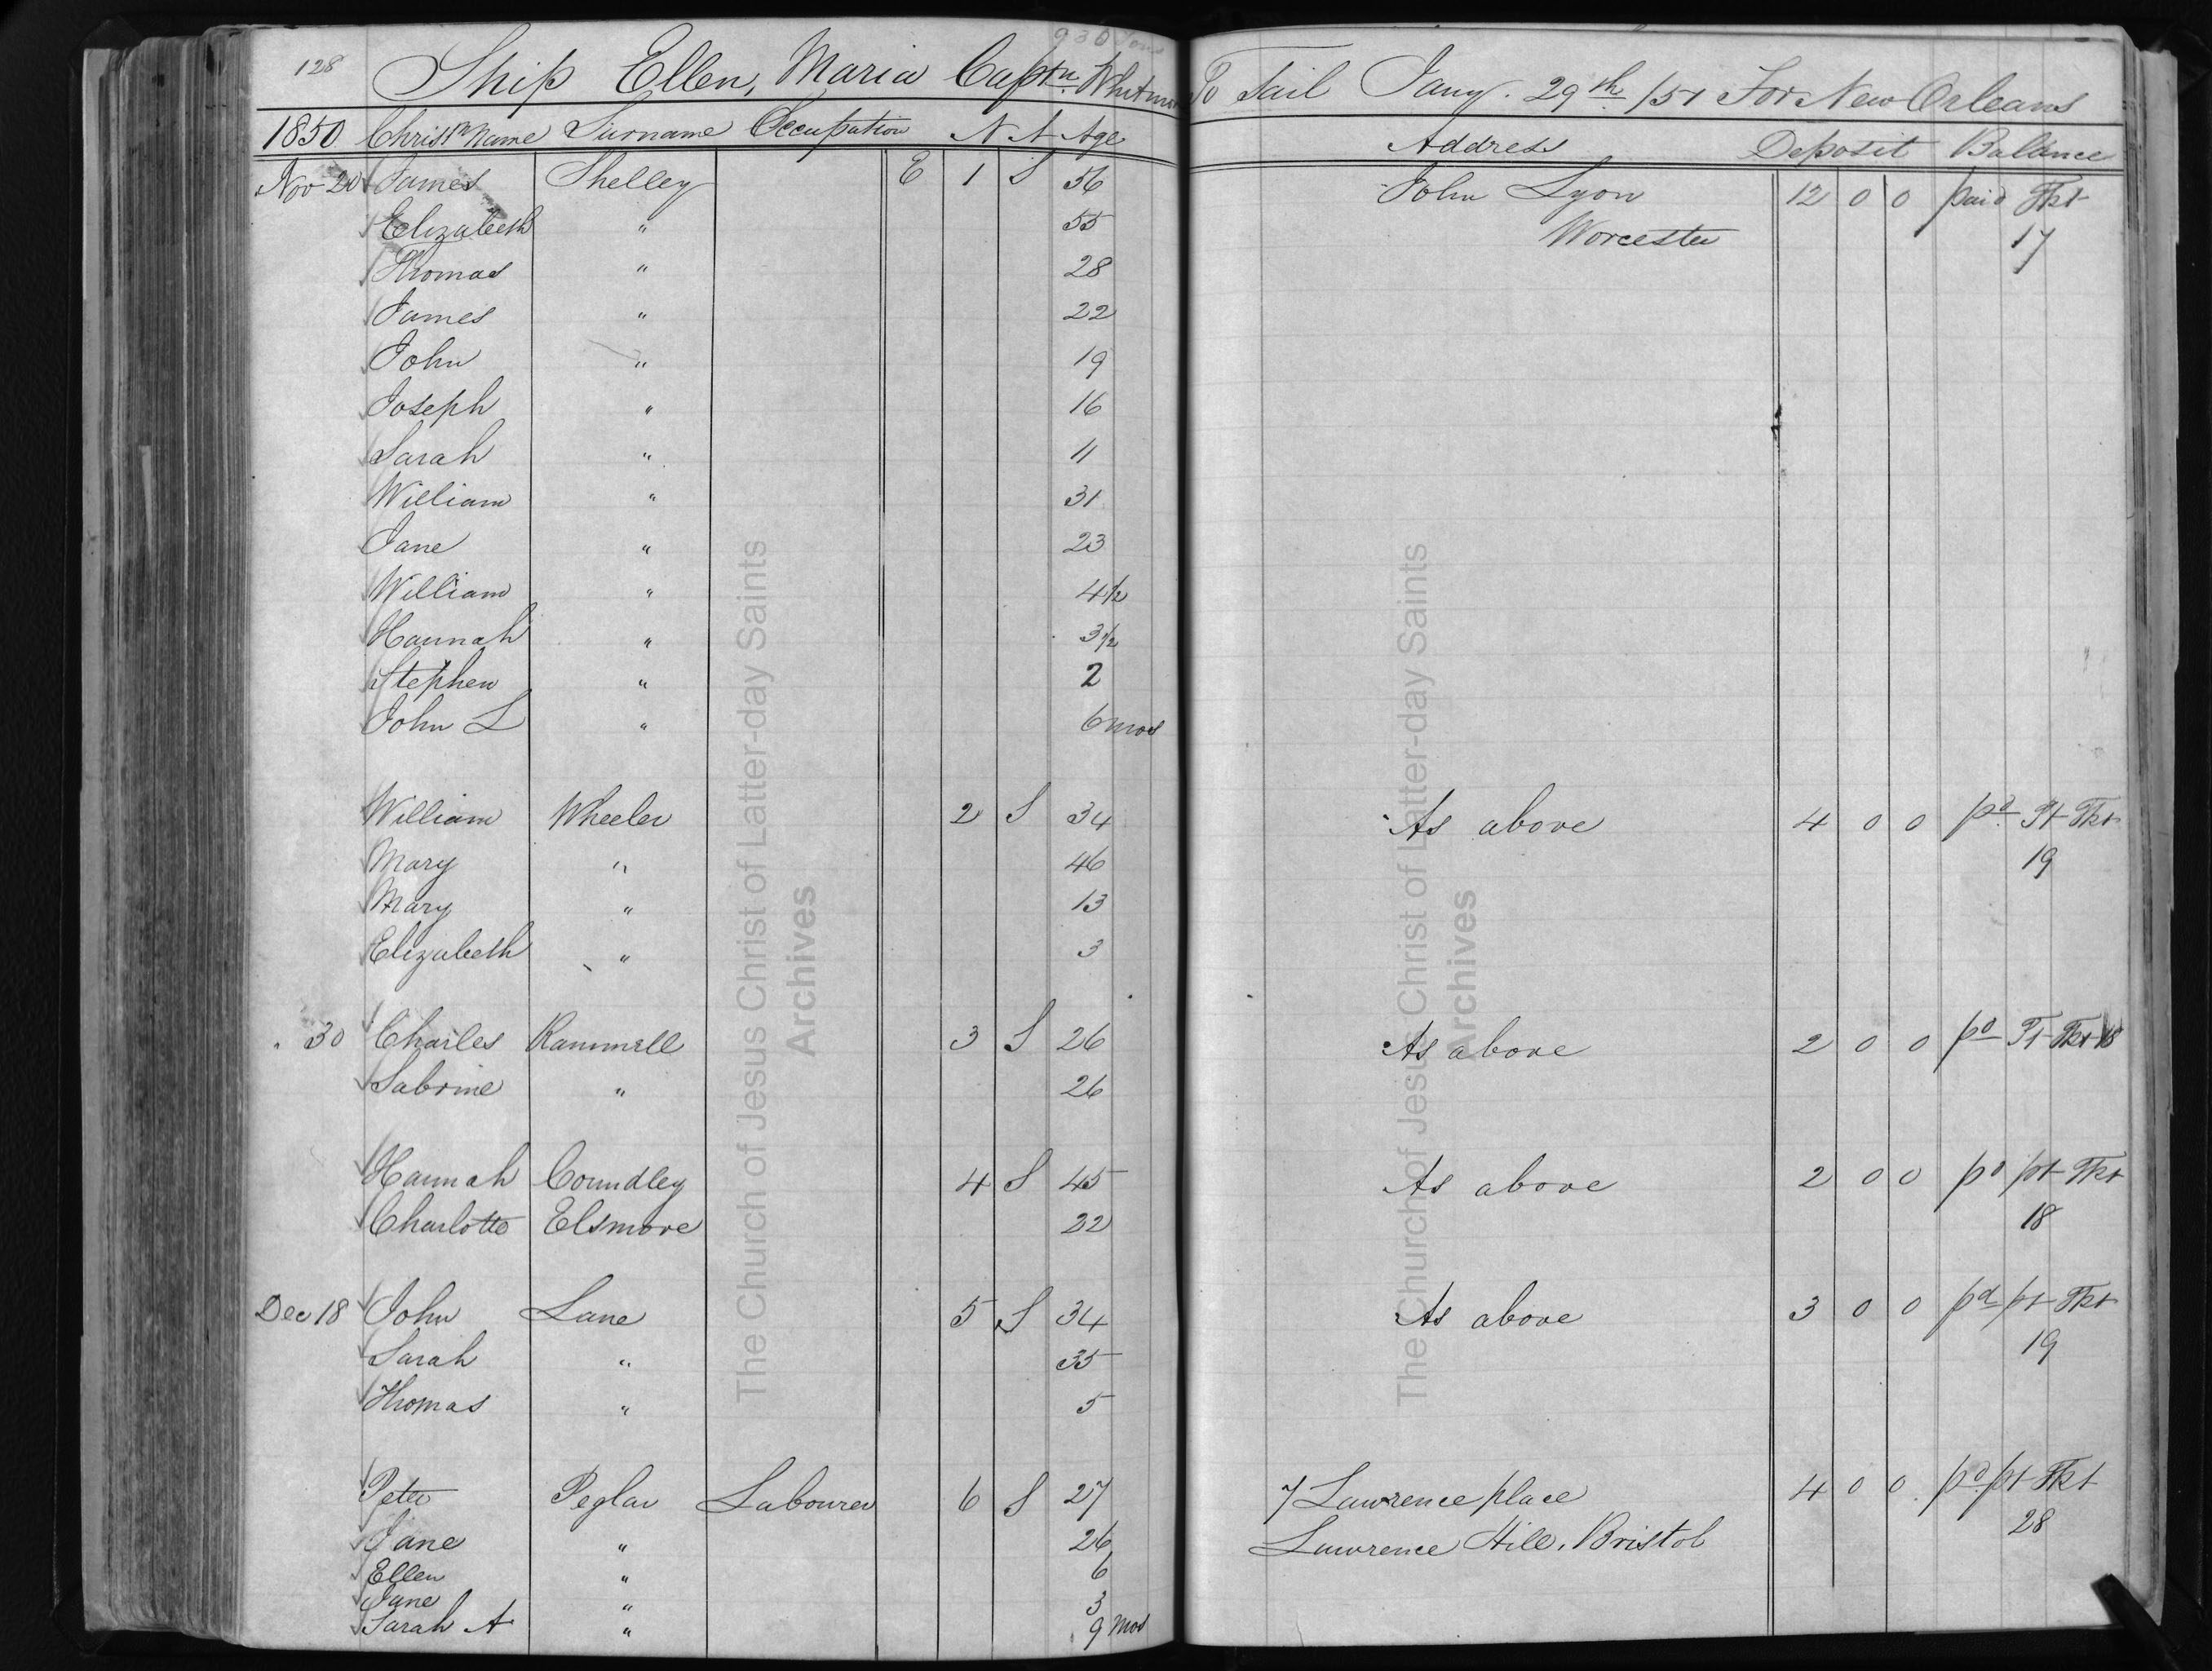 128 Ship Ellen, Maria Captn. Whitmore To Sail Jany. 29th /51 For New Orleans
930 Tons
1850 Christn Name Surname Occupation N A Age Address Deposit Balance
Nov 20 James Shelley E 1 S 56 John Lyon 12 0 0 paid Tkt
Elizabeth " 55 Worcester 17
Thomas " 28
James " 22
John " 19
Joseph " 16
Sarah " 11
William " 31
Jane " 23
William " 4 1/2
Hannah " 3 1/2
Stephen " 2
John L " 6 mos
William Wheeler 2 S 34 As above 4 0 0 pd Pt Tkt
Mary " 46 19
Mary " 13
Elizabeth " 3
" 30 Charles Rammell 3 S 26 As above 2 0 0 pd Pt Tkt 18
Sabrine " 26
Hannah Coundley 4 S 45 As above 2 0 0 pd pt Tkt
Charlotte Elsmore 22 18
Dec 18 John Lane 5 S 34 As above 3 0 0 pd pt Tkt
Sarah " 35 19
Thomas " 5
Peter Peglar Labourer 6 S 27 7 Lawrence place 4 0 0 pd pt Tkt
Jane " 26 Lawrence Hill, Bristol 28
Ellen " 6
Jane " 3
Sarah A " 9 mos
The Church of Jesus Christ of Latter-day Saints
Archives
The Church of Jesus Christ of Latter-day Saints
Archives